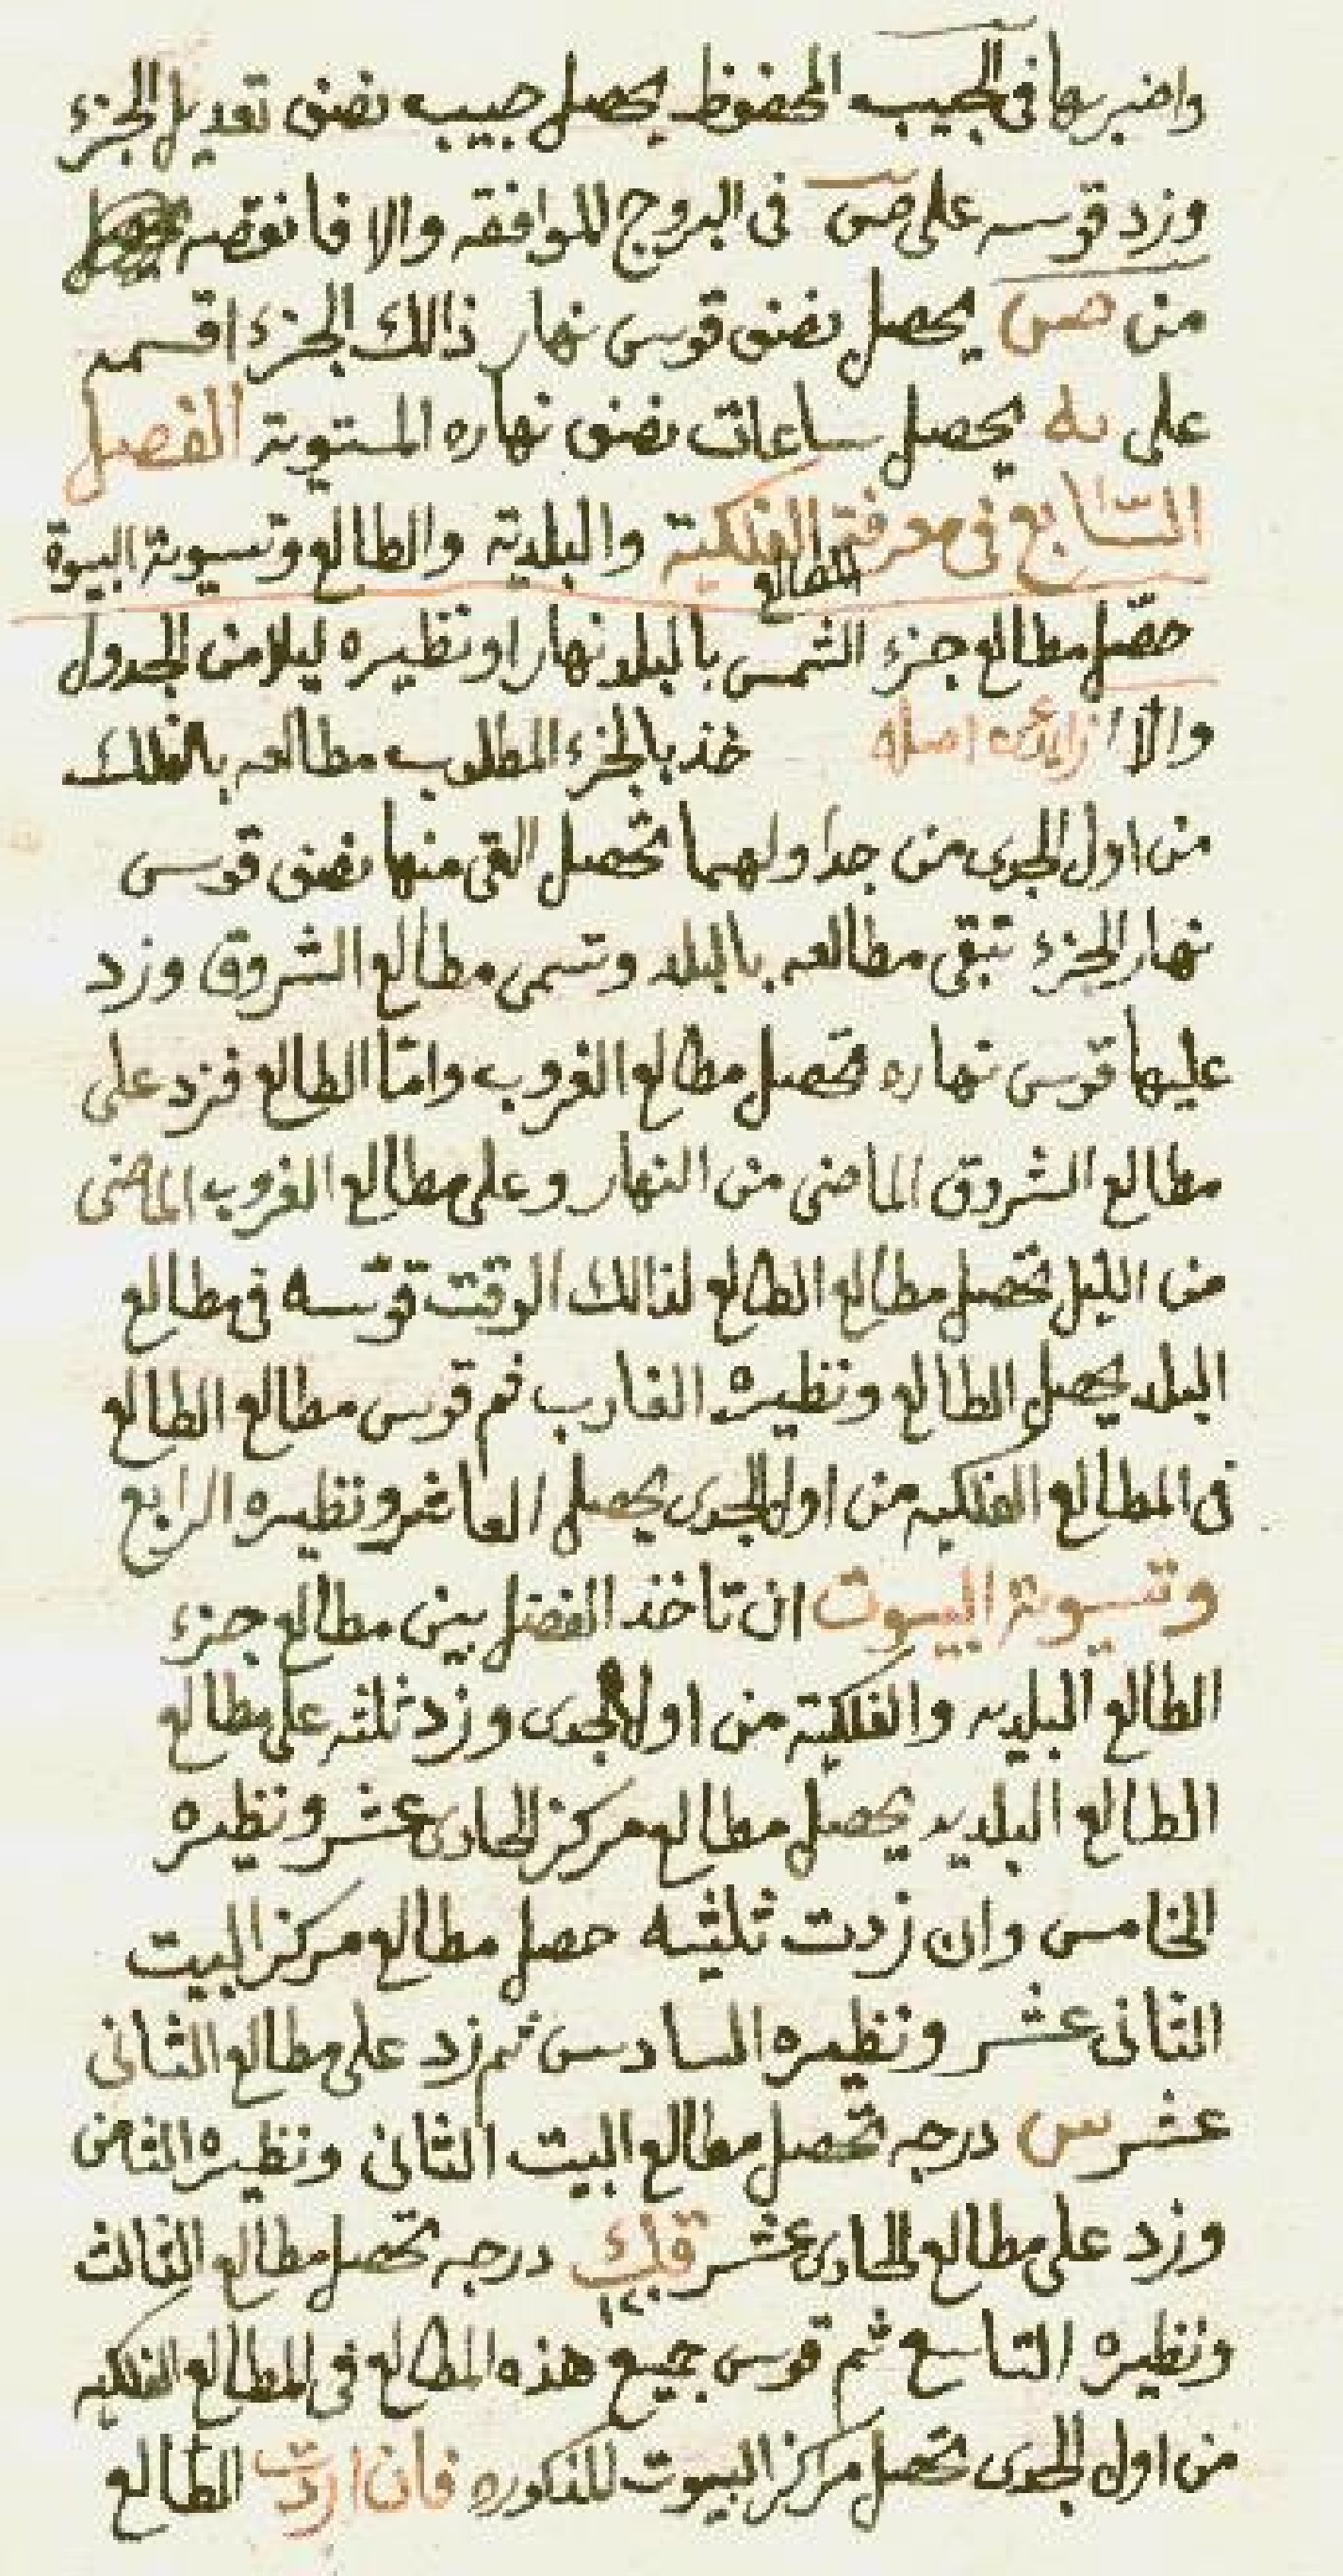 واضربها فى الجيب المحفوظ يحصل جيب نصف تعديل الجزء
وزد قوسه على ص فى البروج الموافقه والا فانقصه
من ص يحصل نصف قوس نهار ذالك الجزء اقسمه
على يه يحصل ساعات نصف نهاره المستوية الفصل
السّابع فى معرفة المطالع الفلكية والبلدية والطالع وتسوية البيوة
حصّل مطالع جزء الشمس بالبلد نهارا ونظيره ليلا من الجدول
والا زايد عن اصله خذ بالجزء المطلوب مطالعه بالفلك
من اول الجدى من جداولهما تحصل القى منها نصف قوس
نهار الجزء تبقى مطالعه بالبلد وتسمى مطالع الشروق وزد
عليها قوس نهاره تحصل مطالع الغروب وامّا الطالع فزد على
مطالع الشروق الماضى من النهار وعلى مطالع الغروب الماضى
من الليل تحصل مطالع الطالع لذالك الوقت قوّسه فى مطالع
البلد يحصل الطالع ونظيره الغارب ثم قوس مطالع الطالع
فى المطالع الفلكيه من اول الجدى يحصل العاشر ونظيره الرابع
وتسوية البيوت ان تاخذ الفضل بين مطالع جزء
الطالع البلديه والفلكية من اول الجدى وزد ثلثه على مطالع
الطالع البلديه يحصل مطالع مركز الحادى عشر ونظيره
الخامس وان زدت ثلثيه حصل مطالع مركز البيت
الثانى عشر ونظيره السادس ثم زد على مطالع الثانى
عشر س درجه تحصل مطالع البيت الثانى ونظيره الثامن
وزد على مطالع الحادى عشر قك ١٢٠ درجه تحصل مطالع الثالث
ونظيره التاسع ثم قوس جميع هذه المطالع فى المطالع الفلكيه
من اول الجدى تحصل مراكز البيوت المذكوره فان اردت الطالع